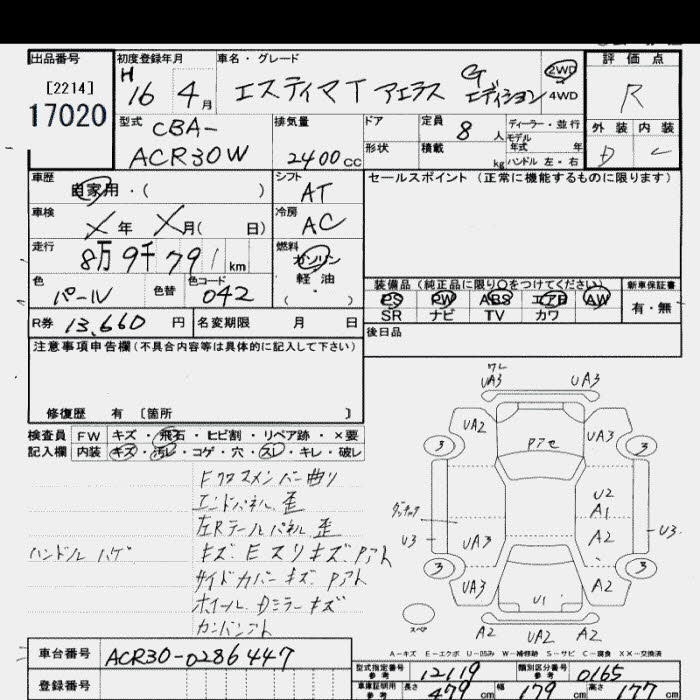 出品番号
[2214]
17020
初度登録年月
H
16 4月
車名・グレード
エスティマT アエラス Gエディション
2WD
4WD
評価点
R
外装 内装
D C
型式
CBA-
ACR30W
排気量
2400cc
ドア
形状
定員
8人
積載
kg
ディーラー・並行
モデル
年式 年
ハンドル 左・右
車歴
自家用・( )
シフト
AT
車検
X年 X月( 日)
冷房
AC
走行
8万9千791km
燃料
ガソリン
軽油
( ・ )
色
パール
色替
色コード
042
R券 13,660円
名変期限 月 日
セールスポイント (正常に機能するものに限ります)
装備品(純正品に限り○をつけてください)
PS PW ABS エアB AW
SR ナビ TV カワ
新車保証書
有・無
後日品
注意事項申告欄(不具合内容等は具体的に記入して下さい)
修復歴 有 [箇所 ]
検査員 FW キズ・飛石・ヒビ割・リペア跡・×要
記入欄 内装 キズ・汚レ・コゲ・穴・スレ・キレ・破レ
Fクロスメンバー曲り
エンドパネル歪
左Rテールパネル歪
ハンドル ハゲ
キズ、Eスリキズ、Pアト
サイドカバーキズ、Pアト
ホイール、Dミラーキズ
カンバンアト
ワレ
UA3 UA3
UA2 UA3
Pアセ
3 3
U2
A1
U3 UA3 A2 U3
3 3
UA3 A2
U1
スペア
A2 UA2 A2
A-キズ E-エクボ U-凹み W-補修跡 S-サビ C-腐食 XX-交換済
車台番号 ACR30-0286447
登録番号
型式指定番号
参考
12119
類別区分番号
参考
0165
車庫証明用
参考
長さ 479cm 幅 179cm 高さ 177cm